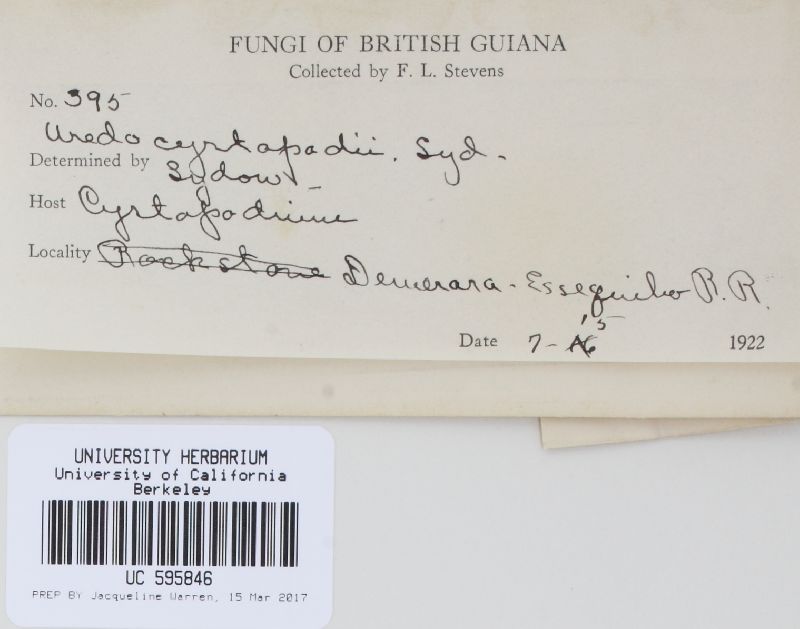 FUNGI OF BRITISH GUIANA
Collected by F. L. Stevens
No. 395
Uredo cyrtapadii, Syd.
Determined by Sydow
Host Cyrtapodium
Locality Rockstone Demerara - Essequibo R. R.
Date 7-16 15 1922
UNIVERSITY HERBARIUM
University of California
Berkeley
UC 595846
PREP BY Jacqueline Warren, 15 Mar 2017